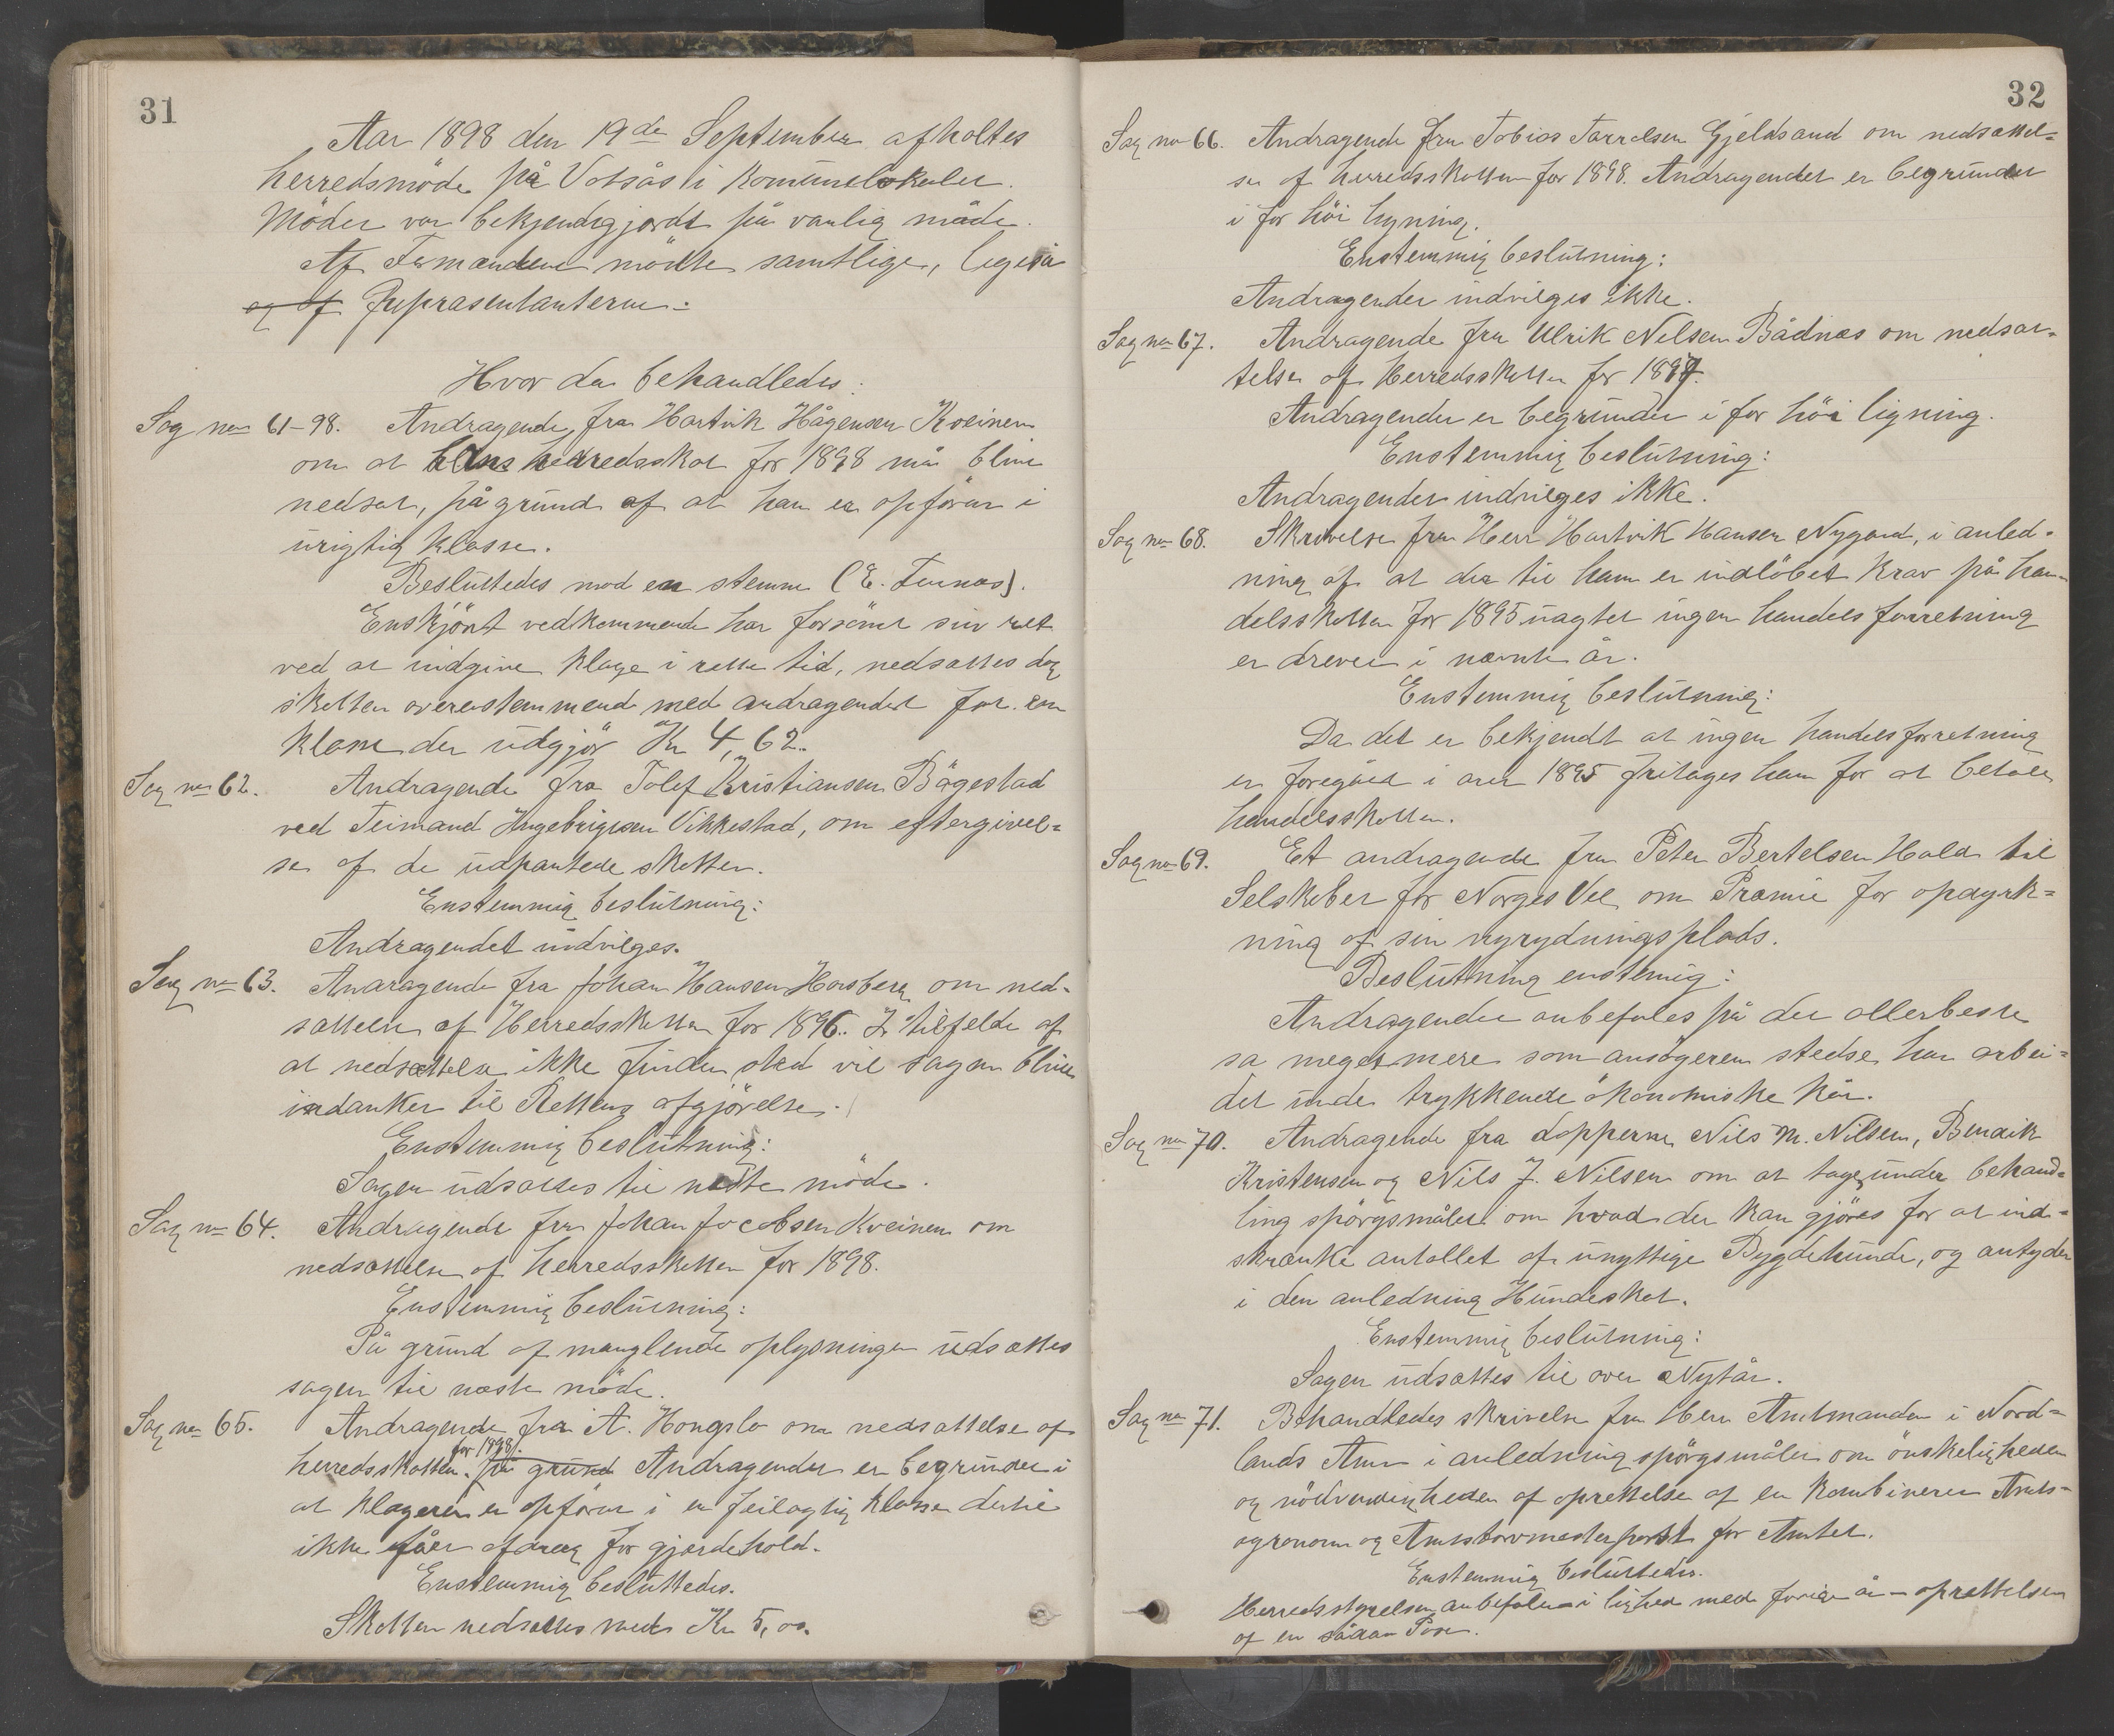 31
Aar 1898 den 19de September afholtes
herredsmöde på Votsås i Komunelokalet.
Mödet var bekjendtgjordt på vanlig måde.
Af Formændene mödte samtlige, ligeså
og af Repræsentanterne.
Hvor da behandledes:
Sag no 61-98. Andragende fra Hartvik Hågensen Kveinen
om at hans herredsskat for 1898 må blive
nedsat, på grund af at han er opført i
urigtig klasse.
Besluttedes mod en stemme (E. Finnæs).
Enskjönt vedkommende har forsömt sin ret
ved at indgive klage i rette tid, nedsattes dog
skatten overenstemmende med andragendet for en
klasse der udgjör Kr 4,62.
Sag no 62. Andragende fra Tolef Kristiansen Bågestad
ved Teimand Ingebrigtsen Vikkestad, om eftergivel-
se af de udpantede skatter.
Enstemmig beslutning:
Andragendet indvilges.
Sag no 63. Andragende fra Johan Hansen Horsberg om ned-
sættelse af Herredsskatten for 1896. I tilfelde af
at nedsættelse ikke finder sted vil sagen blive
indanket til Rettens afgjörelse.
Enstemmig beslutning:
Sagen udsættes til næste möde.
Sag no 64. Andragende fra Johan Jacobsen Kveinen om
nedsættelse af herredsskatten for 1898.
Enstemmig beslutning:
På grund af manglende oplysninger udsættes
sagen til næste möde.
Sag no 65. Andragende fra A. Hongslo om nedsættelse af
for 1898.
herredsskatten. på grund Andragendet er begrundet i
at klageren er opført i en feilagtig klasse dertil
ikke fået afdrag for gjordehold.
Enstemmig besluttedes.
Skatten nedsættes med Kr 5,00.
32
Sag no 66. Andragende fra Tobias Torrelsen Gjeldsand om nedsættel-
se af herredsskatten for 1898. Andragendet er begrundet
i for höi ligning.
Enstemmig beslutning:
Andragendet indvilges ikke.
Sag no 67. Andragende fra Ulrik Nilsen Bådnæs om nedsæt-
telse af Herredsskatten for 1897.
Andragendet er begrundet i for höi ligning.
Enstemmig beslutning:
Andragendet indvilges ikke.
Sag no 68. Skrivelse fra Herr Hartvik Hansen Nygård, i anled-
ning af at der til ham er indlöbet krav på han-
delsskatten for 1895 uagtet ingen handelsforretning
er dreven i nævnte år.
Enstemmig beslutning:
Da det er bekjendt at ingen handelsforretning
er foregået i året 1895 fritages han for at betale
handelsskatten.
Sag no 69. Et andragende fra Peter Bertelsen Hald til
Selskabet for Norges Vel om Præmie for opdyrk-
ning af sin nyrydningsplads.
Beslutning enstemig:
Andragendet anbefales på det allerbeste
sa meget mere som ansögeren stedse har arbei-
det under trykkende ökonomiske kår.
Sag no 70. Andragende fra Lapperne Nils M. Nilsen, Bendik
Kristensen og Nils J. Nilsen om at tage under behand-
ling spörgsmålet om hvad der kan gjöres for at ind-
skrænke antallet af unyttige Bygdehunde, og antyder
i den anledning Hundeskat.
Enstemmig beslutning:
Sagen udsættes til over Nytår.
Sag no 71. Behandledes skrivelse fra Herr Amtmanden i Nord-
lands Amt i anledning spörgsmålet om önskeligheden
og nödvendigheden af oprettelse af en kombineret Amts-
agronom og Amtstorvmesterpost for Amtet.
Enstemmig besluttedes.
Herredsstyrelsen anbefaler - i lighed med forrige år - oprettelsen
af en sådan Post.